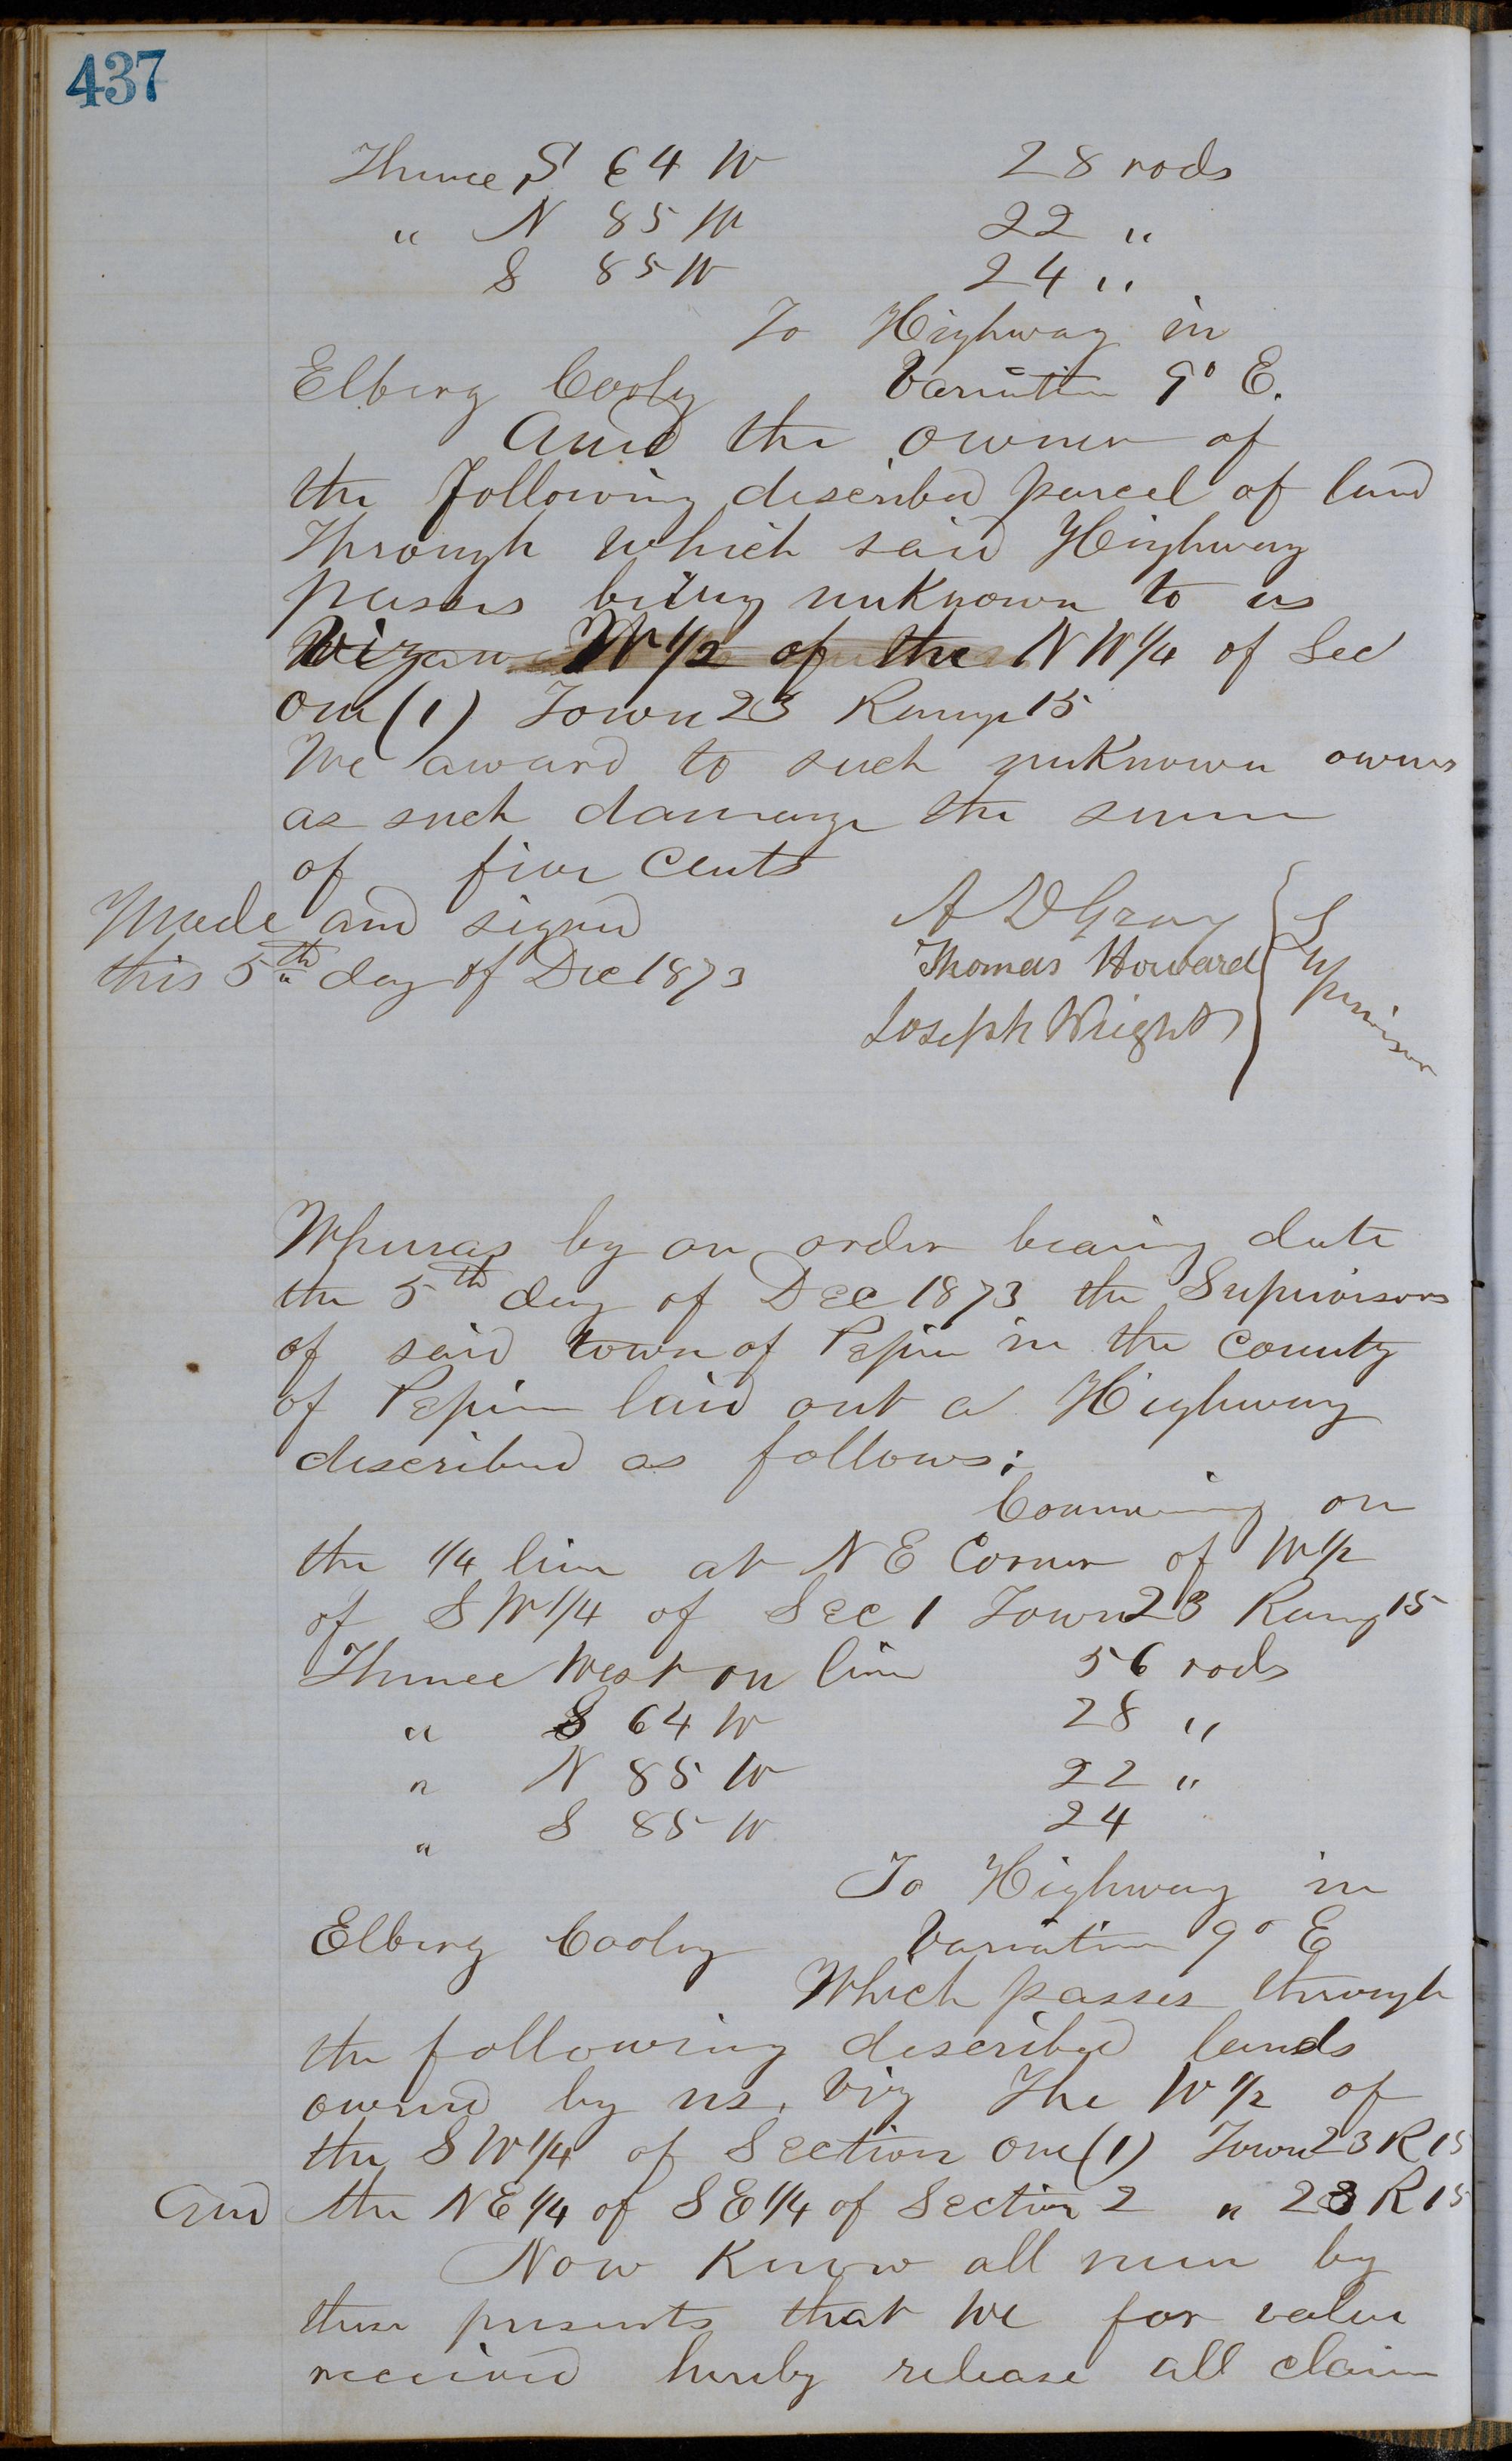 437
Thence S 64 W 28 rods
" N 85 W 22 "
S 85 W 24 "
To Highway in
Elberg Cooly Variation 9° E.
And the owner of
the following described parcel of land
through which said Highway
passes being unknown to us
Viz W 1/2 of the N W 1/4 of Sec
One (1) Town 23 Range 15
We award to such unknown owner
as such damage the sum
of five Cents
Made and signed
this 5th day of Dec 1873
A D Gray
Thomas Howard
Joseph Wright
Supervisors
Whereas by an order bearing date
the 5th day of Dec 1873 the Supervisors
of said town of Pepin in the County
of Pepin laid out a Highway
described as follows:
Commencing on
the 1/4 line at N E Corner of W 1/2
of S W 1/4 of Sec 1 Town 23 Range 15
Thence West on line 56 rods
" S 64 W 28 "
" N 85 W 22 "
" S 85 W 24
To Highway in
Elberg Cooly Variation 9° E
Which passes through
the following described lands
owned by us, Viz The W 1/2 of
the S W 1/4 of Section One (1) Town 23 R 15
And the N E 1/4 of S E 1/4 of Section 2 " 23 R 15
Now Know all men by
these presents that We for value
received hereby release all claim